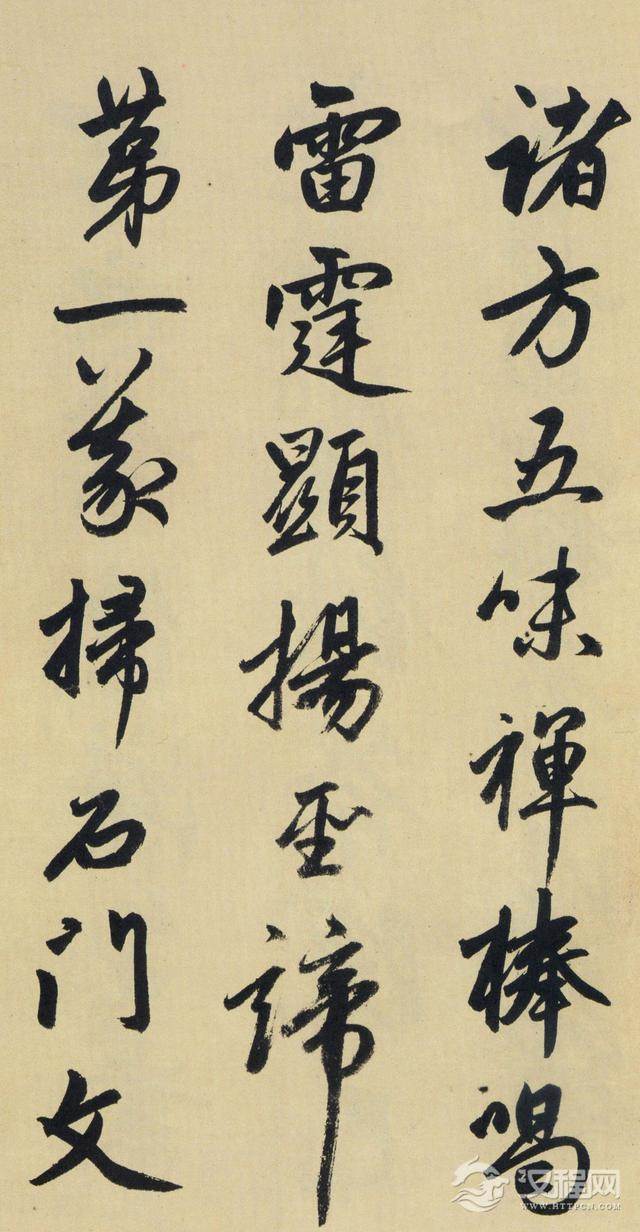 诸方五味禅棒喝
雷霆顯揚聖諦
第一義掃石门文
汉程网
WWW.HTTPCN.COM